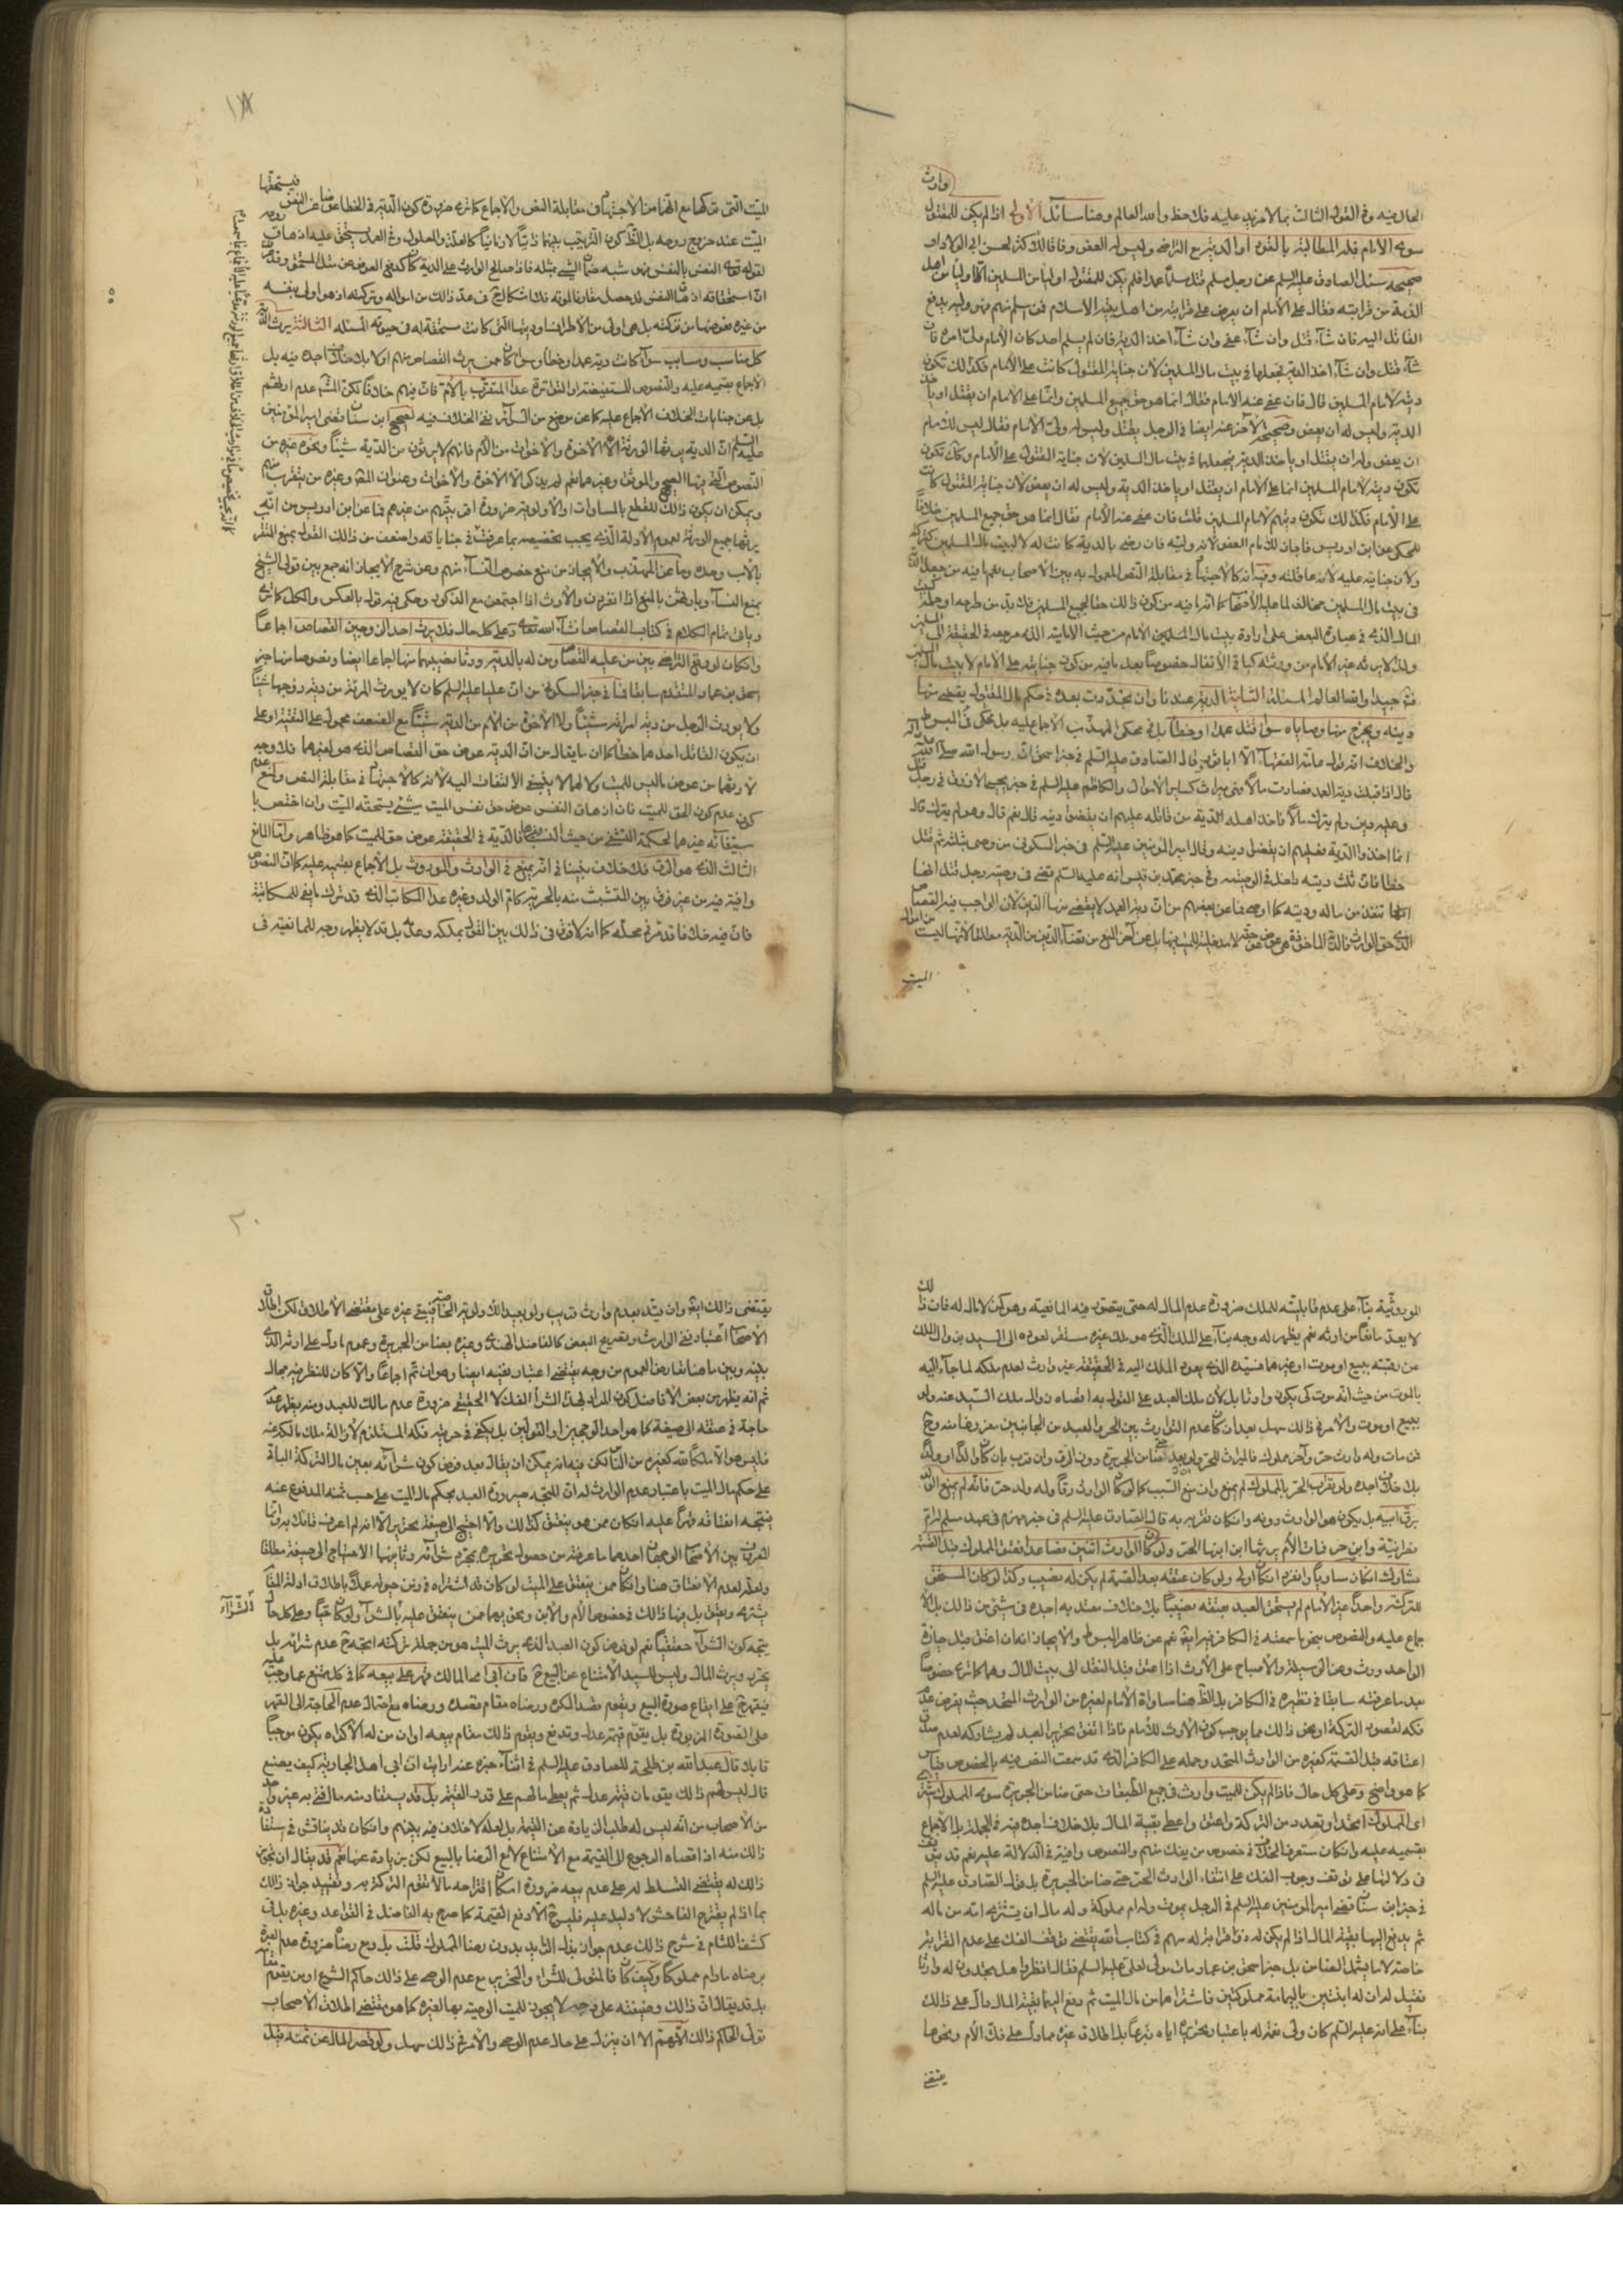 وارث
الحال فيه وفي القول الثالث بما لا مزيد عليه فلاحظ والله العالم وهنا مسائل الاولى اذا لم يكن للمقتول
سوى الامام فله المطالبة بالقود او الدية مع التراضي وليس له العفو وفاقا للاكثر لحسن ابي ولاد او
صحيحه سئل الصادق عليه السلم عن رجل مسلم قتل مسلما عمدا فلم يكن للمقتول اولياء من المسلمين الا اولياء من اهل
الذمة من قرابته فقال على الامام ان يعرض على قرابته من اهل بيته الاسلام فمن اسلم منهم فهو وليه يدفع
القاتل اليه فان شآء قتل وان شآء عفى وان شآء اخذ الدية فان لم يسلم احد كان الامام ولي امره فان
شآء قتل وان شآء اخذ الدية فجعلها في بيت مال المسلمين لان جناية المقتول كانت على الامام فكذلك تكون
ديته لامام المسلمين قال فان عفى عنه الامام فقال انما هو حق جميع المسلمين وانما على الامام ان يقتل او ياخذ
الدية وليس له ان يعفو وصحيحه الآخر عنه ايضا في الرجل يقتل وليس له ولي الا الامام فقال ليس للامام
ان يعفو وله ان يقتل او ياخذ الدية فيجعلها في بيت مال المسلمين لان جناية المقتول على الامام وكذلك تكون
تكون ديته لامام المسلمين
على الامام فكذلك تكون ديتهم لامام المسلمين قلت فان عفى عنه الامام فقال انما هو حق جميع المسلمين خلافا
للمحكي عن ابن ادريس فاجاز للامام العفو لانه وليه فان رضي بالدية كانت له لا لبيت مال المسلمين كتركته
ولان جنايته عليه لانه عاقلته وفيه انه كالاجتهاد في مقابلة النص المعمول به بين الاصحاب
في بيت مال المسلمين
المال الذي في عبارة البعض على ارادة بيت مال المسلمين الامام من حيث الامامة الذي مرجعه في الحقيقة الى
ولذا لا يرثه غير الامام من ورثته كباقي الانفال خصوصا بعد ما فيه من كون جنايته على الامام لا بيت مال
فتدبر جيدا والله العالم المسئلة الثانية الدية عندنا وان تجددت بعده في حكم مال المقتول يقضى منها
دينه ويخرج منها وصاياه سواء قتل عمدا او خطأ بل في محكي المهذب الاجماع عليه بل يحكى في المبسوط
والخلاف انه قول عامة الفقهاء الا ابا ثور قال الصادق عليه السلم في خبر اسحق ان رسول الله صلى الله عليه وآله
قال اذا قبلت دية العمد فصارت مالا فهي ميراث كساير الاموال والكاظم عليه السلم في خبر يحيى الازرق في رجل قتل
وعليه دين ولم يترك مالا فاخذ اهله الدية من قاتله عليهم ان يقضوا دينه قال نعم قال وهو لم يترك قال
انما اخذوا الدية فعليهم ان يقضوا دينه وقال امير المؤمنين عليه السلم في خبر السكوني من اوصى بثلثه ثم قتل
خطأ فان ثلث ديته داخل في الوصيته وفي خبر محمد بن قيس انه عليه السلم قضى في وصية رجل قتل انها
تنفذ من ماله وديته كما اوصى فما عن بعضهم من ان دية العمد لا يقضى منها الدين لان الواجب فيه القصاص
الميت

فيستحقها
الميت التي تركها مع انه اجتهاد في مقابلة النص والاجماع كما ترى ضرورة كون الدية في الخطا عوضا عن النفس
الميت عند خروج روحه بل الظاهر كون الترتيب بينهما ذاتيا لا زمانيا كالعلة والمعلول وفي العمد يستحق عليه اذهاب روحه
لقوله تعه النفس بالنفس فهو شبه ضمان الشيء بمثله فاذا صالح الوارث على الدية كان كدفع العوض عن مثل المستحق
من غيره بعوضها من تركته بل هي اولى من الاطراف وديتها التي كانت مستحقة له في حيوته المسئله الثالثة يرث الدية
كل مناسب ومسابب سوآء كانت دية عمد او خطا وسوآء كان ممن يرث القصاص منهم او لا بلا خلاف اجده فيه بل
الاجماع بقسميه عليه والنصوص المستفيضة او المتواترة عدا المتقرب بالام فان فيهم خلافا لكن المشهور عدم ارثهم
بل عن جنايات الخلاف الاجماع عليه كما عن موضع من السرآئر نفي الخلاف فيه لصحيح ابن سنان قضى امير المؤمنين
عليه السلم ان الدية يرثها الورثة الا الاخوة والاخوات من الام فانهم لا يرثون من الدية شيئا ونحوه غيره من
النصوص التي فيها الصحيح والموثق وغيرهما نعم لم يذكر الا الاخوة والاخوات وعنوان المشهور وغيره من يتقرب بها
ويمكن ان يكون ذلك للقطع بالمساوات او الاولوية ضرورة اقربيتهم من غيرهم فما عن ابن ادريس من انه
يرثها جميع الورثة لعموم الادلة الذي يجب تخصيصه بما عرفت في جناياته واضعف من ذلك القول بمنع المتقرب
بالاب وحده وما عن المهذب والايجاز من منع خصوص النساء منهم وعن شرح الايجاز انه جمع بين قولي الشيخ
بمنع النسآء وبارثهن بالمنع اذا انفردن والارث اذا اجتمعن مع الذكور وحكى فيه قول بالعكس والكل كما ترى
وياتي تمام الكلام في كتاب القصاص انشآء الله تعه وعلى كل حال فلا يرث احد الزوجين القصاص اجماعا
وان كان لو وقع التراضي بين من عليه القصاص ومن له بالدية ورثا نصيبهما منها اجماعا ايضا ونصوصا منها خبر
اسحق بن عمار المتقدم سابقا فما في خبر السكوني من ان عليا عليه السلم كان لا يورث المرئة من دية زوجها شيئا
ولا يورث الرجل من دية امرأته شيئا ولا الاخوة من الام من الدية شيئا مع الضعف محمول على التقية او على
ان يكون القاتل احدهما خطأ كما ان ما يقال من ان الدية عوض حق القصاص الذي هو لغيرهما فلا وجه
لارثهما من عوض ما ليس للميت ولا لهما لا ينبغي الالتفات اليه لانه كالاجتهاد في مقابلة النص
كون عدم كون الحق للميت فان اذهاب النفس عوض حق نفس الميت شيء يستحقه الميت وان اختص با
ستيفائه غيرهما لحكمة التشفي من حيث النسب فالدية في الحقيقة عوض حق للميت كما هو ظاهر واما المانع
الثالث الذي هو الرق فلا خلاف بيننا في انه يمنع في الوارث والموروث بل الاجماع بقسميه عليه كما ان النصوص
وافية فيه من غير فرق بين المتشبث منه بالحرية كام الولد وغيره عدا المكاتب الذي قد ترك ما يفي للمكاتبة
فان فيه خلافا قد مر في محله كما انه لا فرق في ذلك بين القول بملكه وعدمه بل قد لا يظهر وجه للمانعية في

الموروثية بناء على عدم قابليته للملك ضرورة عدم المال له حتى يتصور فيه المانعية وهو كمن لا مال له فان ذلك
لا يعد مانعا من ارثه نعم يظهر له وجه بناء على الملك الذي هو ملك غيره مستقر لعوده الى السيد بزوال الملك
عن رقبته ببيع او موت او غيرهما فسيده الذي يعود الملك اليه في الحقيقة غير وارث لعدم ملكه لما جآء اليه
بالموت من حيث انه موت كي يكون وارثا بل لان ملك العبد على القول به اقصاه زوال ملك السيد عنه ولو
ببيع او موت والامر في ذلك سهل بعد ان كان عدم التوارث بين الحر والعبد من الجانبين مفروغا منه وح
فمن مات وله وارث حر وآخر مملوك فالميراث للحر ولو بعد كضامن الجريرة دون الرق وان قرب بان كان ولدا او والدا
بلا خلاف اجده ولو تقرب الحر بالمملوك لم يمنع وان منع السبب كما لو كان الوارث رقا وله ولد حر فانه لم يمنع الولد
برق ابيه بل يكون هو الوارث دونه وان كان تقربه به قال الصادق عليه السلم في خبر مهزم في عبد مسلم له ام
نصرانية وابن حر فماتت الام يرثها ابن ابنها الحر ولو كان الوارث اثنين فصاعدا فعتق المملوك قبل القسمة
شارك ان كان مساويا وانفرد ان كان اولى ولو كان عتقه بعد القسمة لم يكن له نصيب وكذا لو كان المستحق
للتركة واحدا غير الامام لم يستحق العبد بعتقه نصيبا بلا خلاف معتد به اجده في شيء من ذلك بل الا
جماع عليه والنصوص بنحو ما سمعته في الكافر فيه ايضا نعم عن ظاهر المبسوط والايجاز انه ان اعتق قبل حيازة
الواحد ورث وعن الوسيلة والاصباح على الارث اذا اعتق قبل النقل الى بيت المال وهما كما ترى خصوصا
بعد ما عرفته سابقا في نظيره في الكافر بل الظاهر هنا مساواة الامام لغيره من الوارث المتحد حيث يفرض عدم
فكه لقصور التركة او نحو ذلك مما يوجب كون الارث للامام فاذا اتفق تحرير العبد لم يشاركه لعدم صدق
اعتاقه قبل القسمة كغيره من الوارث المتحد وحمله على الكافر الذي قد سمعت النص فيه بالخصوص قياس
كما هو واضح وعلى كل حال فاذا لم يكن للميت وارث في جميع الطبقات حتى ضامن الجريرة سوى المملوك اشترى
اي المملوك اتحد او تعدد من التركة واعتق واعطي بقية المال بلا خلاف اجده فيه في الجملة بل الاجماع
بقسميه عليه وان كان ستعرف الخلاف في خصوص من يفك منهم والنصوص وافية في الدلالة عليه نعم قد يتوقف
في دلالتها على توقف وجوب الفك على انتفاء الوارث الحر حتى ضامن الجريرة بل قول الصادق عليه السلم
في خبر ابن سنان قضى امير المؤمنين عليه السلم في الرجل يموت وله ام مملوكة وله مال ان يشترى امه من ماله
ثم يدفع اليها بقية المال اذا لم يكن له ذو قرابة له سهم في كتاب الله يقتضي توقف الفك على عدم القرابة
خاصة لا ما يشمل الضامن بل خبر اسحق بن عمار مات مولى لعلي عليه السلم فقال انظروا هل تجدون له وارثا
فقيل له ان له ابنتين باليمامة مملوكتين فاشتراهما من مال الميت ثم دفع اليهما بقية المال دال على ذلك
بناء على انه عليه السلم كان ولي نعمته له باعتبار تحريره اياه تبرعا بل اطلاق غيره مما دل على فك الام ونحوها
يقتضي

٢٠
يقتضي ذلك ايضا وان قيد بعدم وارث قريب ولو بعبد الله ولو بترك الخاصة فيبقى غيره على مقتضى الاطلاق لكن اطلاق
الاصحاب اعتبار نفي الوارث وتصريح البعض كالفاضل الهندي وغيره بضامن الجريرة وعموم ما دل على ارثه الذي
بينه وبين ما هنا تعارض العموم من وجه يقتضي اعتبار نفيه ايضا وهو ان تم اجماعا والا كان للنظر فيه مجال
ثم انه يظهر من بعض الافاضل كون المراد بهذا الشرآء الفك لا الحقيقي ضرورة عدم مالك للعبد ومنه يظهر عدم
حاجة في عتقه الى صيغة كما هو احد الوجهين او القولين بل يكفي في حريته فكه المستلزم لازالة ملك مالكه عنه
فليس هو الا ملكا لله كغيره من الناس لكن فيه انه يمكن ان يقال بعد فرض كون شرآئه بعين مال التركة الباقة
على حكم مال الميت باعتبار عدم الوارث له ان المتجه صيرورة العبد بحكم مال الميت على حسب ثمنه المدفوع عنه
فيتجه انعتاقه قهرا عليه ان كان ممن هو ينعتق كذلك والا احتيج الى صيغة تحرير الا انه لم اعرف قائلا بهذا
التفصيل بين الاصحاب اذ الوجهان احدهما ما عرفته من حصول تحريره بمجرد شرآئه وثانيهما الاحتياج الى صيغة مطلقا
ولعله لعدم الانعتاق هنا وان كان ممن ينعتق على الميت لو كان قد اشتراه في زمن حيوته عملا باطلاق ادلة الفك
يشترى ويعتق بل فيها ذلك في خصوص الام والابن ونحوهما ممن ينعتق عليه بالشرآء لو كان حيا وعلى كل حال
الشرآء
يتجه كون الشرآء حقيقيا نعم لو فرض كون العبد الذي يرث الميت هو من جملة تركته اتجه ح عدم شرائه بل
يحرر ويرث المال وليس للسيد الامتناع عن البيع ح فان ابى المالك قهر على بيعه كما في كل ممتنع عما وجب عليه
فيقهر ح على ايقاع صورة البيع ويقوم قصد المكره ورضاه مقام قصده ورضاه مع احتمال عدم الحاجة الى القهر
على الصورة المزبورة بل يقوم قيمة عدل وتدفع ويقوم ذلك مقام بيعه او ان من له الاكراه يكون موجبا
قابلا قال عبد الله بن طلحة للصادق عليه السلم في اثنآء خبره عنه ارايت ان ابى اهل الجارية كيف يصنع
قال ليس لهم ذلك يقومان قيمة عدل ثم يعطى مالهم على قدر القيمة بل قد يستفاد منه ما افتى به غير واحد
من الاصحاب من انه ليس له طلب الزيادة عن القيمة بل لعله لا خلاف فيه بينهم وان كان قد يناقش في استفادة
ذلك منه اذ اقصاه الرجوع الى القيمة مع الامتناع لا مع الرضا بالبيع لكن بزيادة عنها نعم قد يقال ان تجويز
ذلك له يقتضي التسلط له على عدم بيعه ضرورة امكان اقتراحه ما لا تقوم التركة به وتقييد جواز ذلك
بما اذا لم يقترح الفاحش لا دليل عليه فليس ح الا دفع القيمة كما صرح به الفاضل في القواعد وغيره بل في
كشف اللثام في شرح ذلك عدم جواز بذل الزايد بدون رضا المملوك قلت بل ومع رضاه ضرورة عدم العبرة
برضاه ما دام مملوكا وكيف كان فالمتولي للشراء والتحرير مع عدم الوصي على ذلك حاكم الشرع او من يقوم مقامه
بل قد يقال ان ذلك وظيفته على وجه لا يجوز للميت الوصية بها لغيره كما هو مقتضى اطلاق الاصحاب
تولي الحاكم ذلك اللهم الا ان ينزل على حال عدم الوصي والامر في ذلك سهل ولو قصر المال عن ثمنه قيل